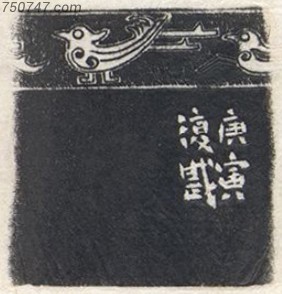 750747.com
庚寅
復戡